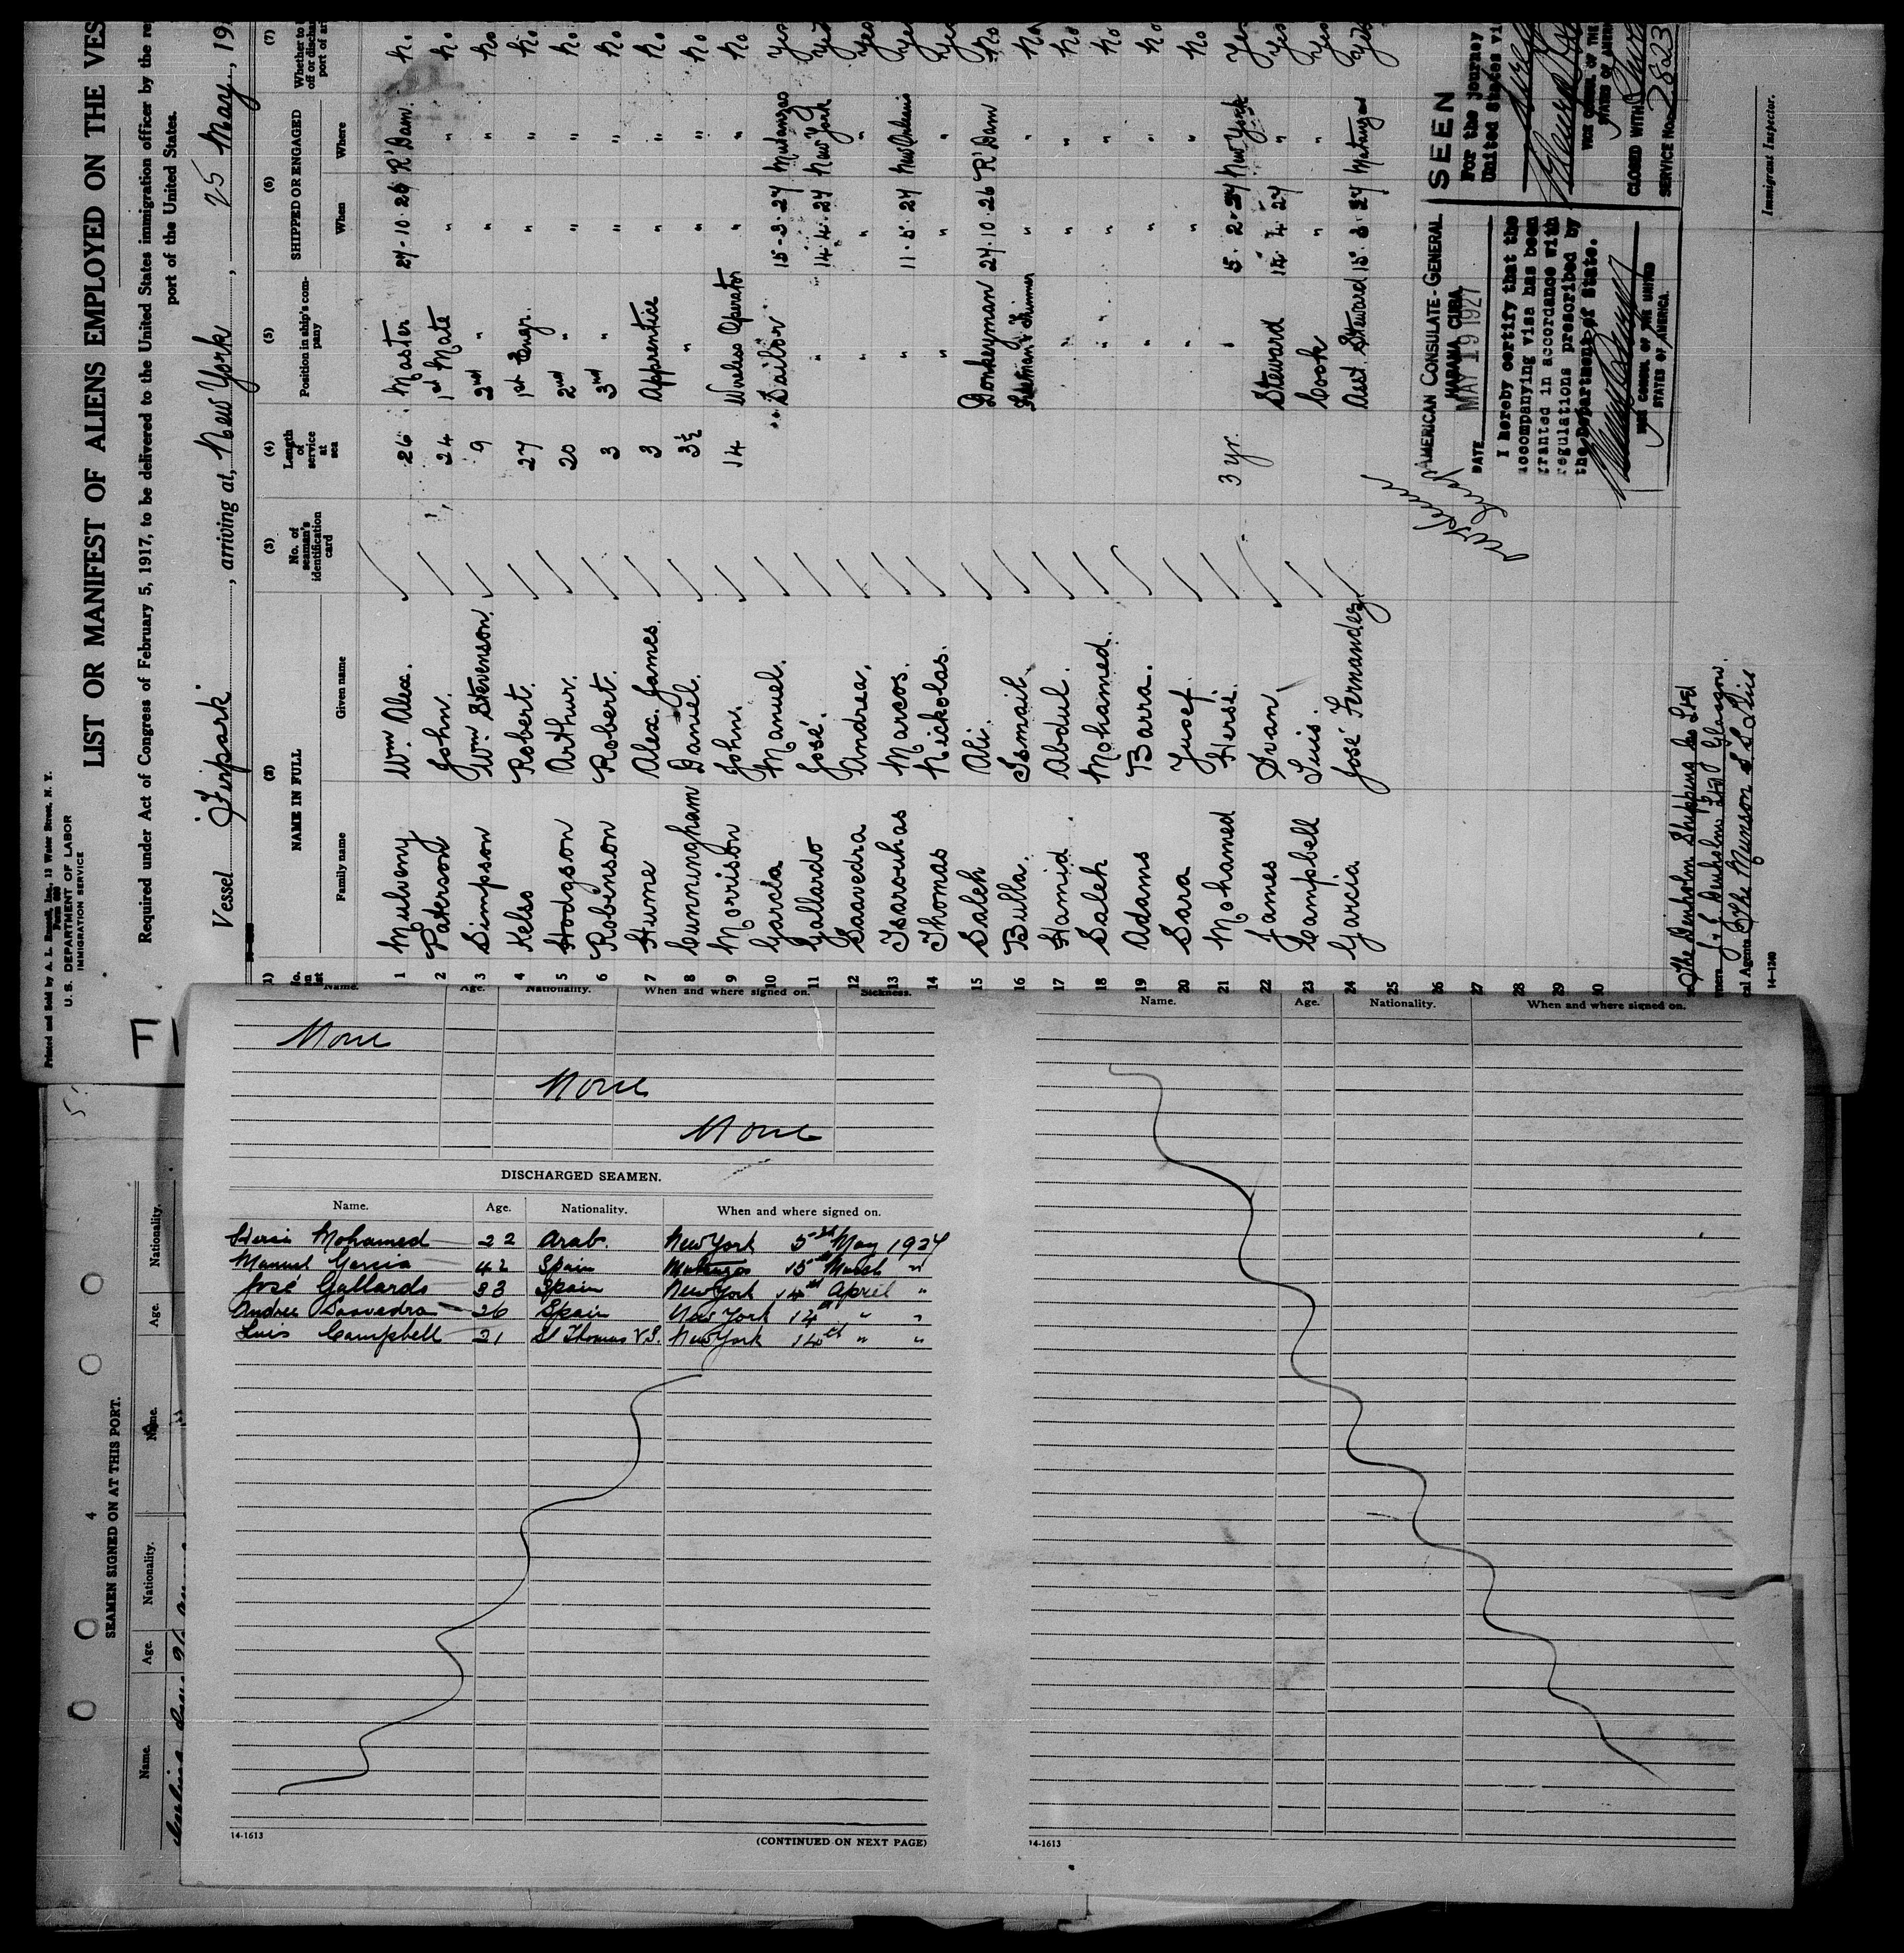 Printed and Sold by A. L. Russell, Inc., 13 Water Street, N. Y.
Form 680
U. S. DEPARTMENT OF LABOR
IMMIGRATION SERVICE
LIST OR MANIFEST OF ALIENS EMPLOYED ON THE VES
Required under Act of Congress of February 5, 1917, to be delivered to the United States immigration officer by the re
port of the United States.
Vessel Firpark, arriving at, New York, 25 May, 19
(1) (2) (3) (4) (5) (6) (7)
NAME IN FULL No. of seaman's identification card Length of service at sea Position in ship's company SHIPPED OR ENGAGED Whether to
off or discha
port of ar
Family name Given name When Where
1 Mulveny Wm Alex. 26 Master 27-10-26 R'Dam. No
2 Paterson John. 24 1st Mate " " No
3 Simpson Wm Stevenson. 9 2nd " " " No
4 Kelso Robert. 27 1st Engr. " " No
5 Hodgson Arthur. 20 2nd " " " No
6 Robinson Robert. 3 3rd " " " No
7 Hume Alex. James. 3 Apprentice " " No
8 Cunningham Daniel. 3½ " " " No
9 Morrison John. 14 Wireless Operator " " No
10 Garcia Manuel. Sailor 15-3-27 Matanzas Yes
11 Gallardo José. " 14.4.27 New York Yes
12 Saavedra Andrea. " " " Yes
13 Tsarouhas Marcos. " 11.5.27 New Orleans Yes
14 Thomas Nickolas. " " " Yes
15 Saleh Ali. Donkeyman 27.10.26 R'Dam No
16 Bulla. Ismail. Fireman & Trimmer " " No
17 Hamid. Abdul. " " " No
18 Saleh Mohamed. " " " No
19 Adams Barra. " " " No
20 Sara Yusef. " " " No
21 Mohamed Hersi. 3 yr. " 5.2.27 New York Yes
22 James Ivan. Steward 14.4.27 " Yes
23 Campbell Luis. Cook " " Yes
24 Garcia José Fernandez Asst. Steward 15.3.27 Matanzas Yes
25
26
27
28
29
30
AMERICAN CONSULATE-GENERAL
HABANA CUBA
DATE MAY 19 1927
I hereby certify that the
accompanying visa has been
granted in accordance with
regulations prescribed by
the Department of State.
VICE CONSUL OF THE UNITED
STATES OF AMERICA.
SEEN
For the journey
United States vi
VICE CONSUL OF THE
STATES OF AMERI
CLOSED WITH
SERVICE No. 2823
The Denholm Shipping Co Ltd
J. & J. Denholm Ltd Glasgow.
cal Agents The Munson S.S. Line
14-1240
Immigrant Inspector.
Name. Age. Nationality. When and where signed on. Sickness.
None
None
None
DISCHARGED SEAMEN.
Name. Age. Nationality. When and where signed on.
Hersi Mohamed 22 Arab. New York 5th May 1927
Manuel Garcia 42 Spain Matanzas 15th March "
José Gallardo 33 Spain New York 14th April "
Andrea Saavedra 26 Spain New York 14th " "
Luis Campbell 21 St Thomas V.I. New York 14th " "
14-1613
(CONTINUED ON NEXT PAGE)
Name. Age. Nationality. When and where signed on.
14-1613
4
SEAMEN SIGNED ON AT THIS PORT.
Name. Age. Nationality. Name. Age. Nationality.